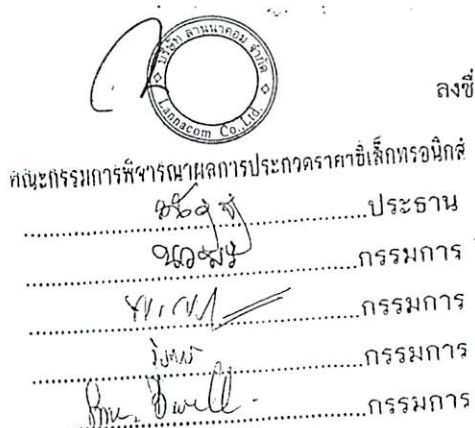 บริษัท ลานนาคอม จำกัด
Lannacom Co.,Ltd.
ลงชื่
คณะกรรมการพิจารณาผลการประกวดราคาอิเล็กทรอนิกส์
ประธาน
กรรมการ
กรรมการ
กรรมการ
กรรมการ